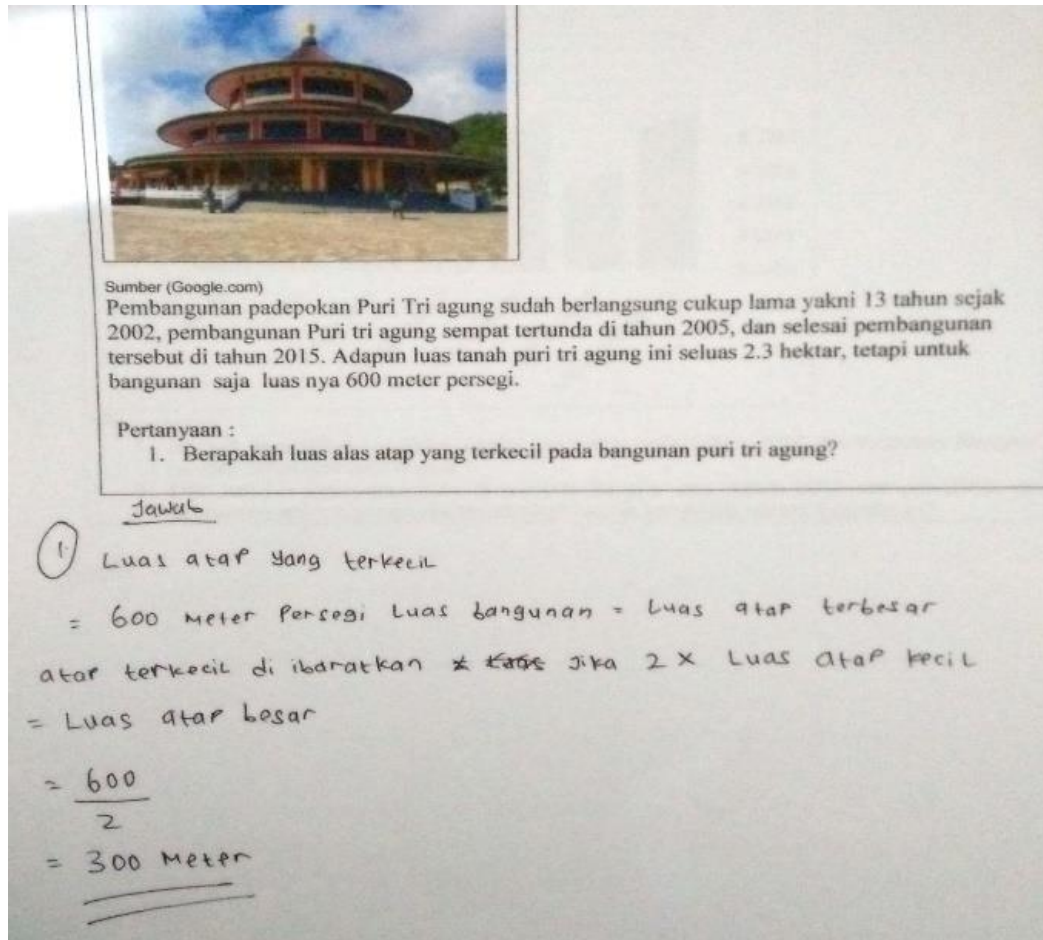 Sumber (Google.com)
Pembangunan padepokan Puri Tri agung sudah berlangsung cukup lama yakni 13 tahun sejak
2002, pembangunan Puri tri agung sempat tertunda di tahun 2005, dan selesai pembangunan
tersebut di tahun 2015. Adapun luas tanah puri tri agung ini seluas 2.3 hektar, tetapi untuk
bangunan saja luas nya 600 meter persegi.
Pertanyaan :
1. Berapakah luas alas atap yang terkecil pada bangunan puri tri agung?
Jawab
1. Luas atap yang terkecil
= 600 meter persegi luas bangunan = luas atap terbesar
atap terkecil di ibaratkan jika 2 x Luas atap kecil
= Luas atap besar
= 600
2
= 300 Meter